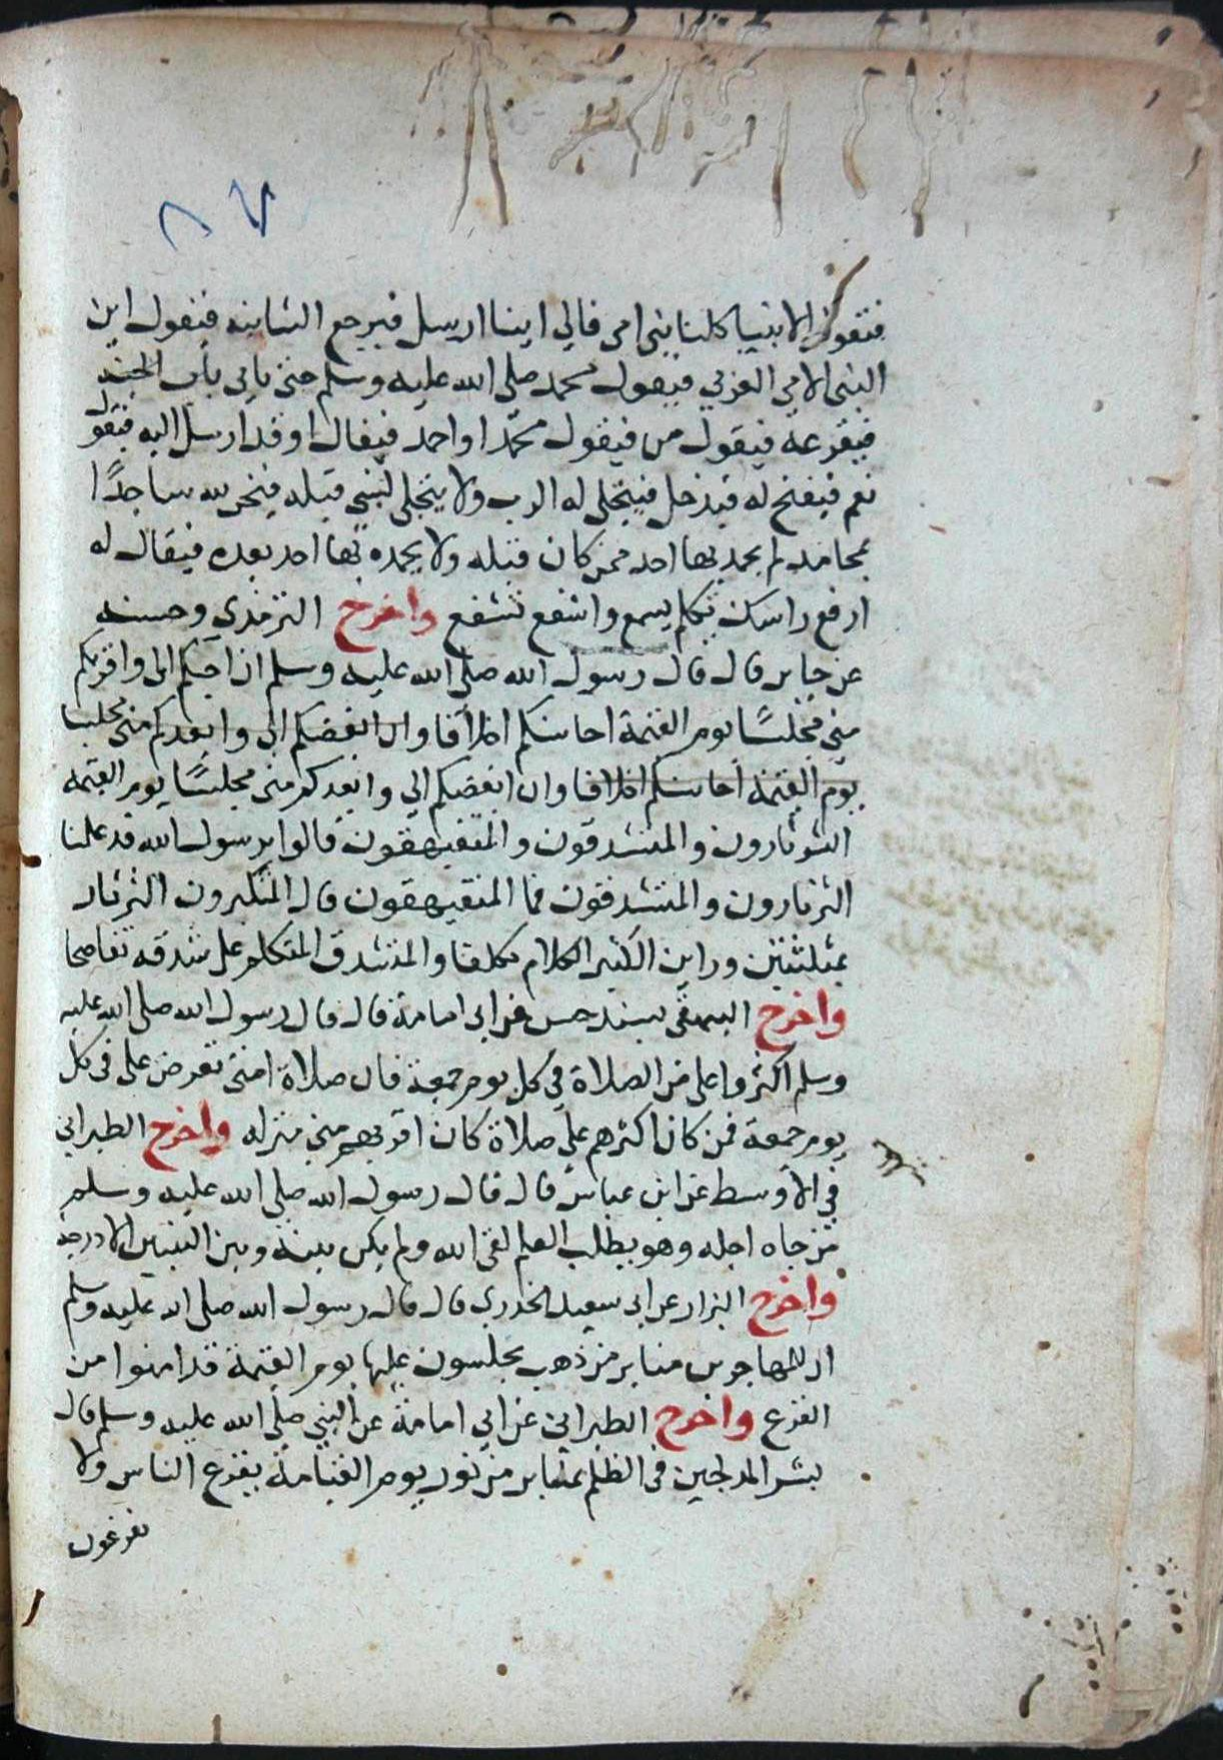 ٨٧
فتقول الانبيا كلنا نبي امي فالي اينا ارسل فيرجع الثانيه فيقول اين
النبي الامي العربي فيقول محمد صلى الله عليه وسلم حتى ياتي باب الجنه
فيقرعه فيقول من فيقول محمد او احمد فيقال او قد ارسل اليه فيقول
نعم فيفتح له فيدخل فيتجلى له الرب ولا يتجلى لنبي قبله فيخر لله ساجدًا
بمحامد لم يحمد بها احد ممن كان قبله ولا يحمده بها احد بعده فيقال له
ارفع راسك تكلم يسمع واشفع تشفع واخرج الترمذي وحسنه
عن جابر قال قال رسول الله صلى الله عليه وسلم ان احبكم الى واقربكم
مني مجلسًا يوم القيمة احاسنكم اخلاقا وان ابغضكم الي وابعدكم مني مجلسا
يوم القيمة احاسنكم اخلاقا وان ابغضكم الي وابعدكم مني مجلسًا يوم القيمة
الثرثارون والمتشدقون والمتفيهقون قالوا يرسول الله قد علمنا
الثرثارون والمتشدقون فما المتفيهقون قال المتكبرون الثرثار
بمثلثتين وراين الكثير الكلام تكلفا والمتشدق المتكلم على شدقه تفاصحا
واخرج البيهقي بسند حسن عن ابي امامة قال قال رسول الله صلى الله عليه
وسلم اكثروا على من الصلاة في كل يوم جمعة فان صلاة امتي تعرض على في كل
يوم جمعة فمن كان اكثرهم علي صلاة كان اقربهم مني منزله واخرج الطبراني
في الاوسط عن ابن عباس قال قال رسول الله صلى الله عليه وسلم
من جاه اجله وهو يطلب العلم لقى الله ولم يكن بينه وبين النبيين الا درجة
واخرج البزار عن ابي سعيد الخدري قال قال رسول الله صلى الله عليه وسلم
ان للمهاجرين منابر من ذهب يجلسون عليها يوم القيمة قد امنوا من
الفزع واخرج الطبراني عن ابي امامة عن النبي صلى الله عليه وسلم قال
بشر المدلجين في الظلم بمنابر من نور يوم القيامة يفزع الناس ولا
يفزعون